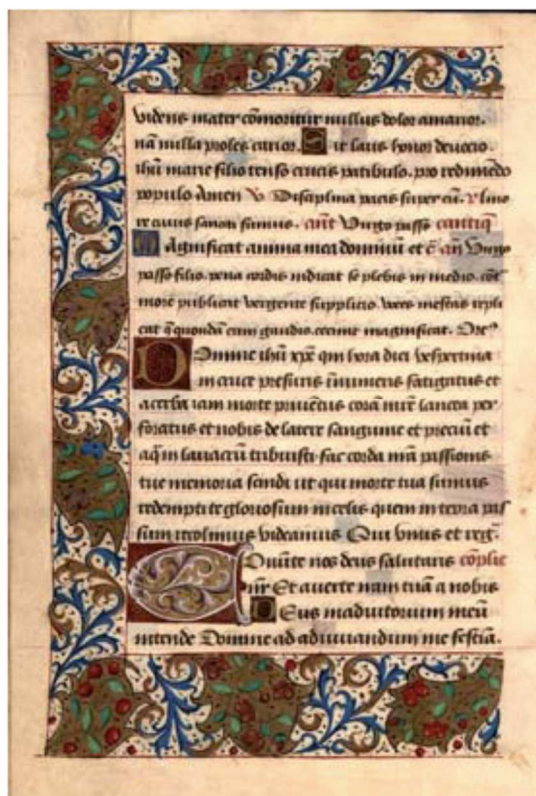 videns mater cōmoritur nullus dolor amarior.
nā nulla proles carior. Sit laus honor devocio.
ihū marie filio tenso crucis patibulo. pro redimēdo
populo Amen V Disciplina pacis super eū. R livo
re cuius sanati sumus. añt Virgo passo cantiq̄
Magnificat anima mea dominū et c̄ añ Virgo
passo filio. pena cordis indicat se plebis in medio.
more publicat vergente supplicio. voces mestas repli
cat q̄ quondā cum gaudio. cecinit magnificat. Ore²
Domine ihū xp̄e qui hora diei vespertina
in cruce pressuris inumeris fatigatus et
acerba iam morte corā mr̄e lancea per
foratus et nobis de latere sanguine et preciū et
aq̄m lavacrū tribuisti. fac corda nr̄a passionis
tue memoria scindi ut qui morte tua sumus
redempti te gloriosum in celis quem in terra pas
sum recolimus videamus Qui vivis et regn̄.
Converte nos deus salutaris cōplic
nr̄ Et averte iram tuā a nobis
Deus in adiutorium meū
intende Domine ad adiuvandum me festiā.